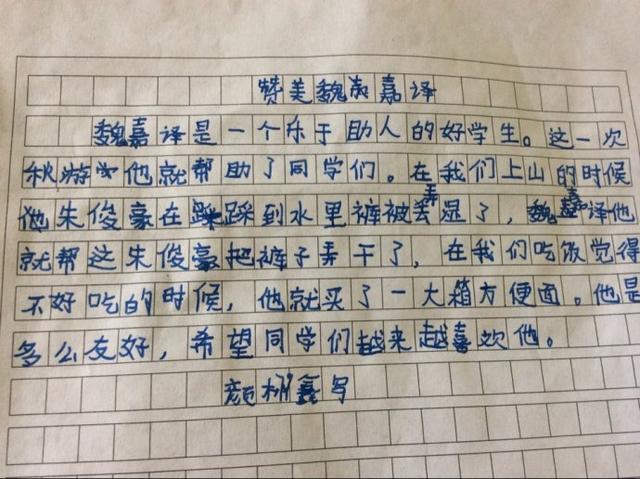 赞美魏嘉译
魏嘉译是一个乐于助人的好学生。这一次
秋游他就帮助了同学们。在我们上山的时候
他朱俊豪在踩到水里裤被弄湿了，魏嘉译他
就帮这朱俊豪把裤子弄干了，在我们吃饭觉得
不好吃的时候，他就买了一大箱方便面。他是
多么友好，希望同学们越来越喜欢他。
颜栩鑫写